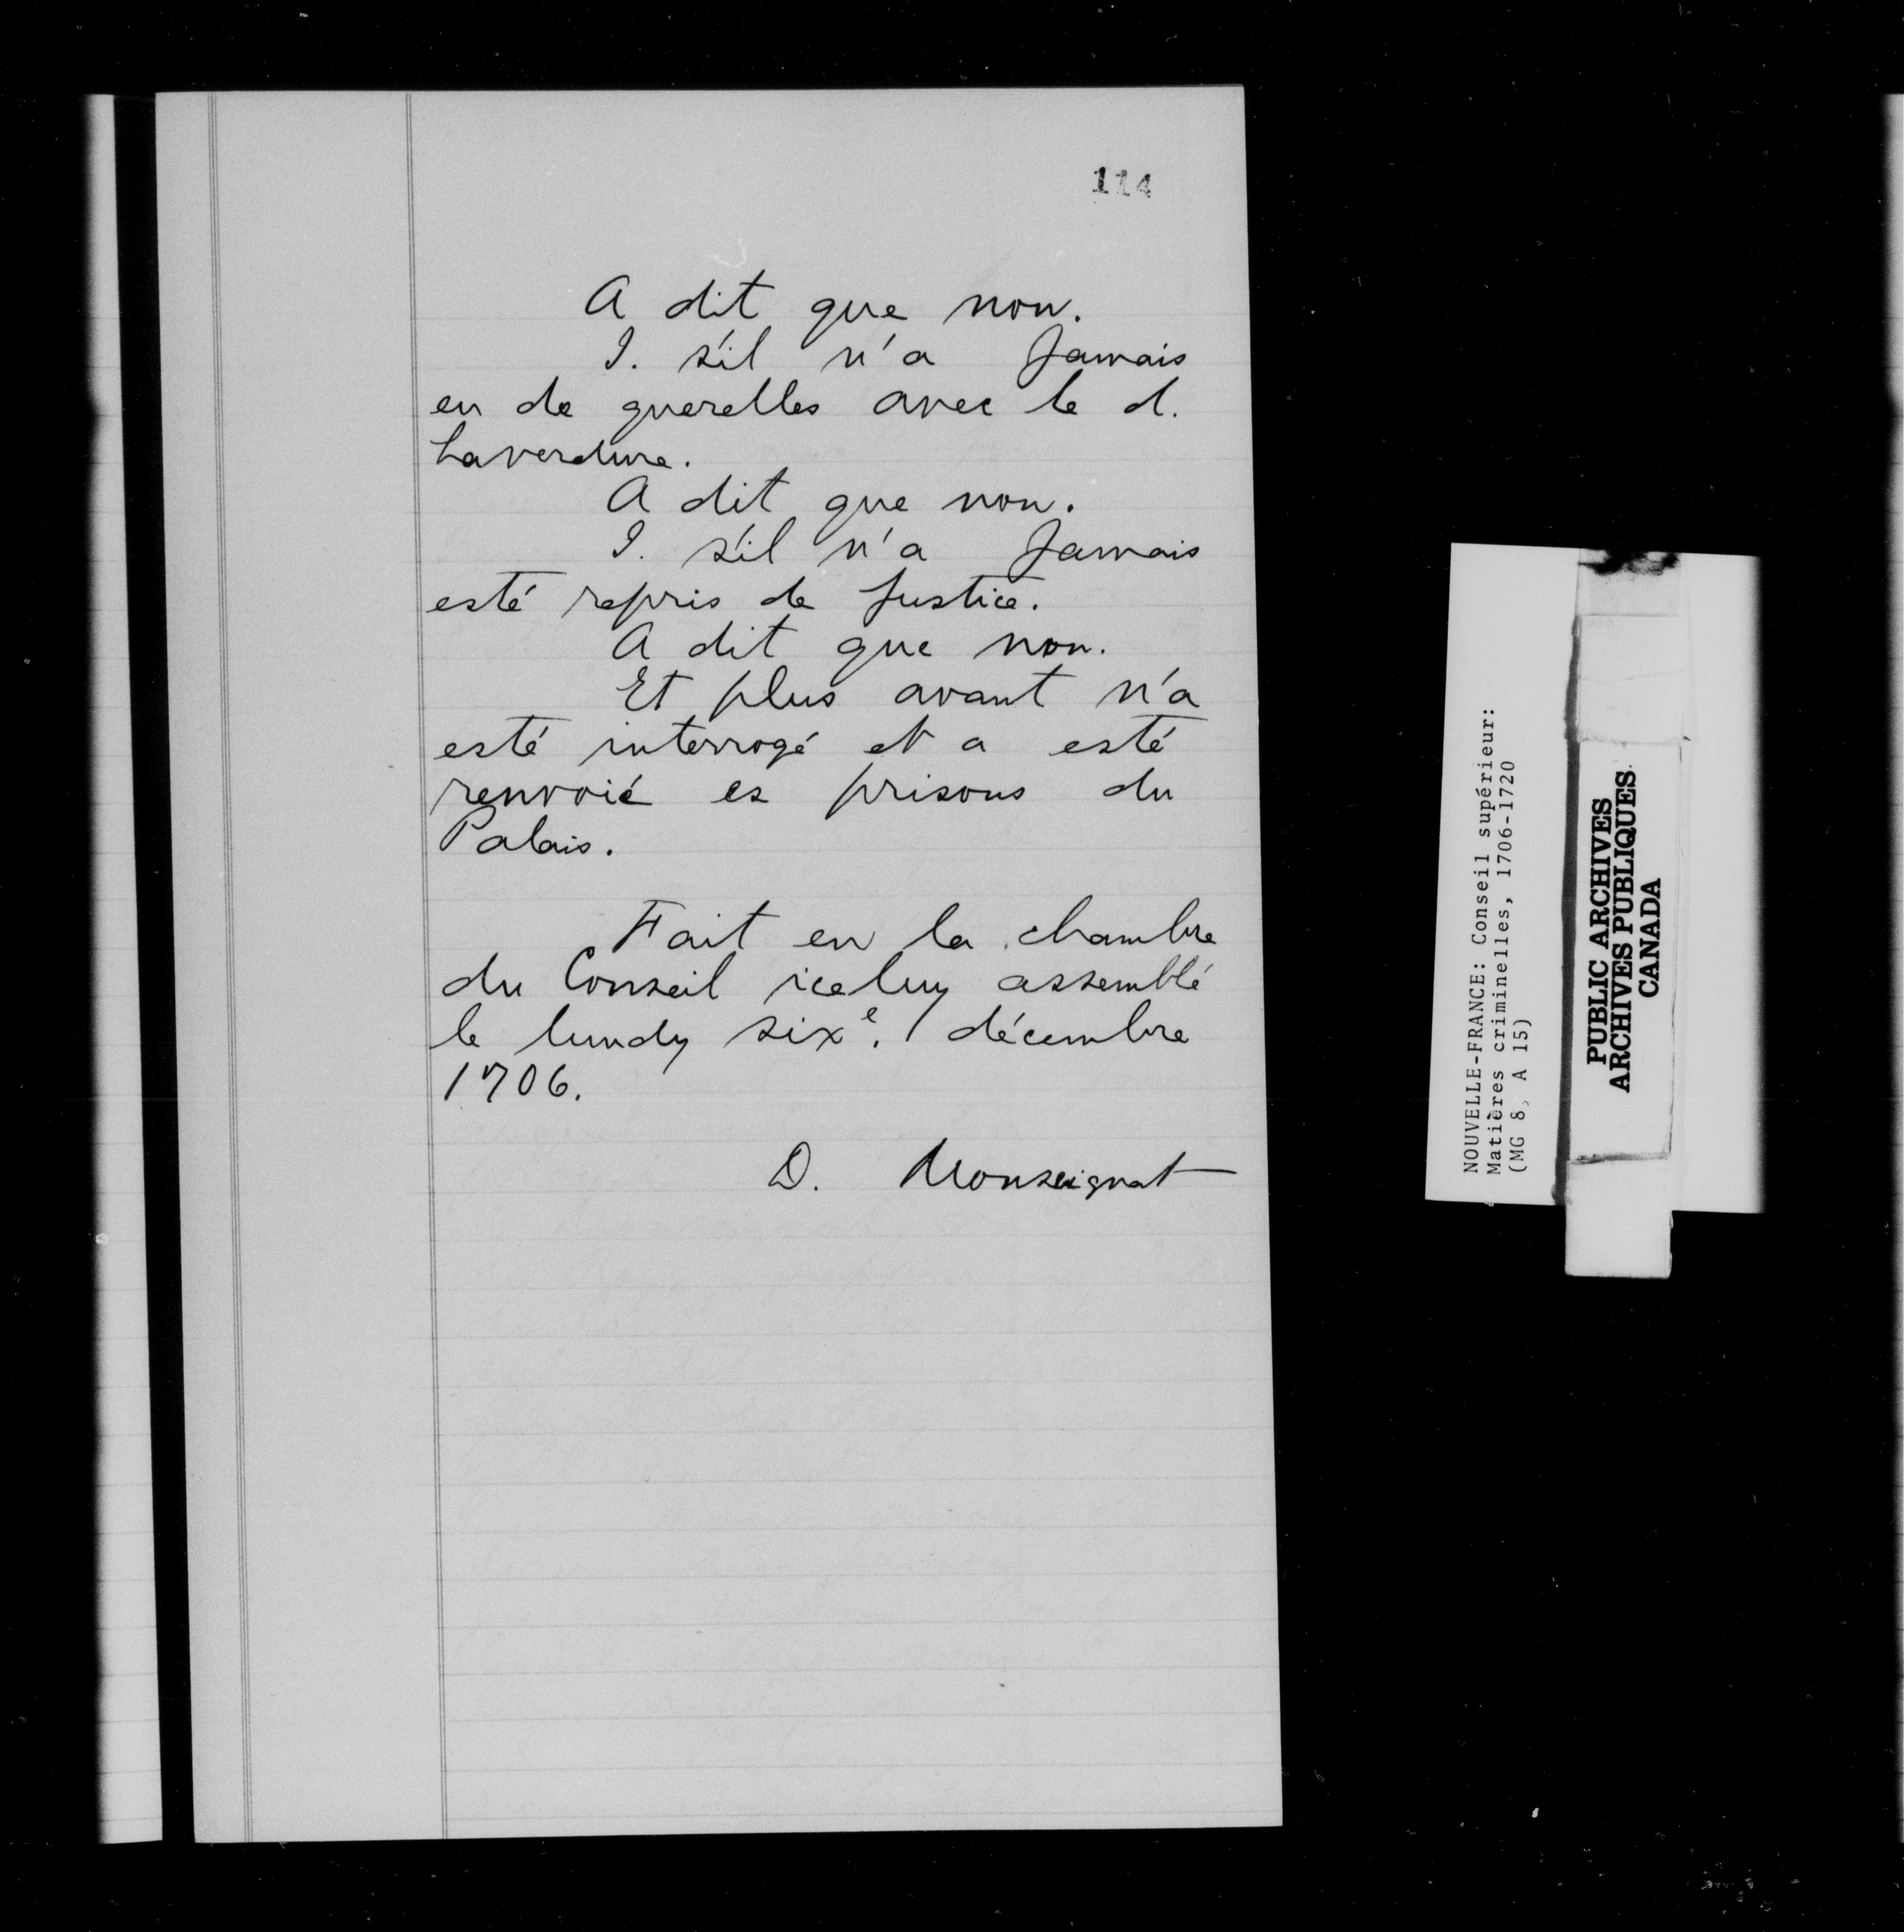 114
A dit que non.
I. s'il n'a Jamais
eu de querelles avec le d.
Laverdure.
A dit que non.
I. s'il n'a Jamais
esté repris de Justice.
A dit que non.
Et plus avant n'a
esté interrogé et a esté
renvoié es prisons du
Palais.
Fait en la chambre
du Conseil iceluy assemblé
le lundy sixe. décembre
1706.
D. Monseignat
NOUVELLE-FRANCE: Conseil supérieur:
Matières criminelles, 1706-1720
(MG 8, A 15)
PUBLIC ARCHIVES
ARCHIVES PUBLIQUES
CANADA